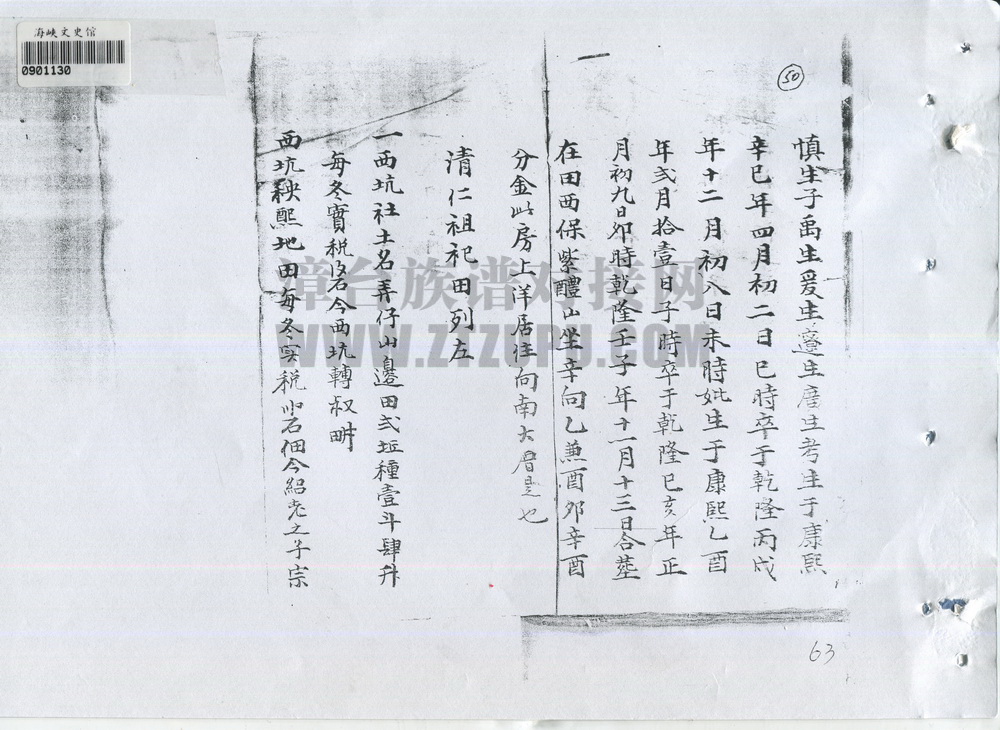 海峡文史馆
0901130
50
慎生子禹生爰生蘧生麿生考生于康熙
辛巳年四月初二日巳時卒于乾隆丙戌
年十二月初八日未時妣生于康熙乙酉
年弍月拾壹日子時卒于乾隆巳亥年正
月初九日卯時乾隆壬子年十一月十三日合塟
在田西保紫醴山坐辛向乙兼酉卯辛酉
分金此房上洋居住向南大厝是也
清仁祖祀田列左
一西坑社土名弄仔山邊田弍坵種壹斗肆升
每冬實税石今西坑轉叔畊
西坑秧熙地田每冬实税石佃今紹先之子宗
63
漳台族谱对接网
WWW.ZTZUPU.COM